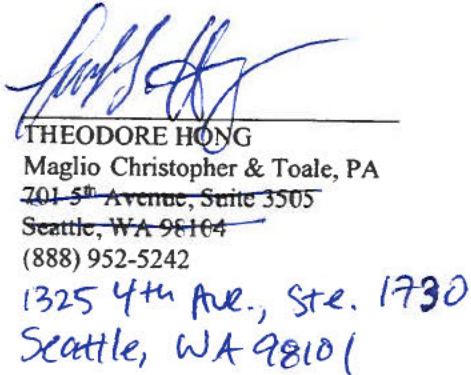 THEODORE HONG
Maglio Christopher & Toale, PA
701 5th Avenue, Suite 3505
Seattle, WA 98104
(888) 952-5242
1325 4th Ave., Ste. 1730
Seattle, WA 98101